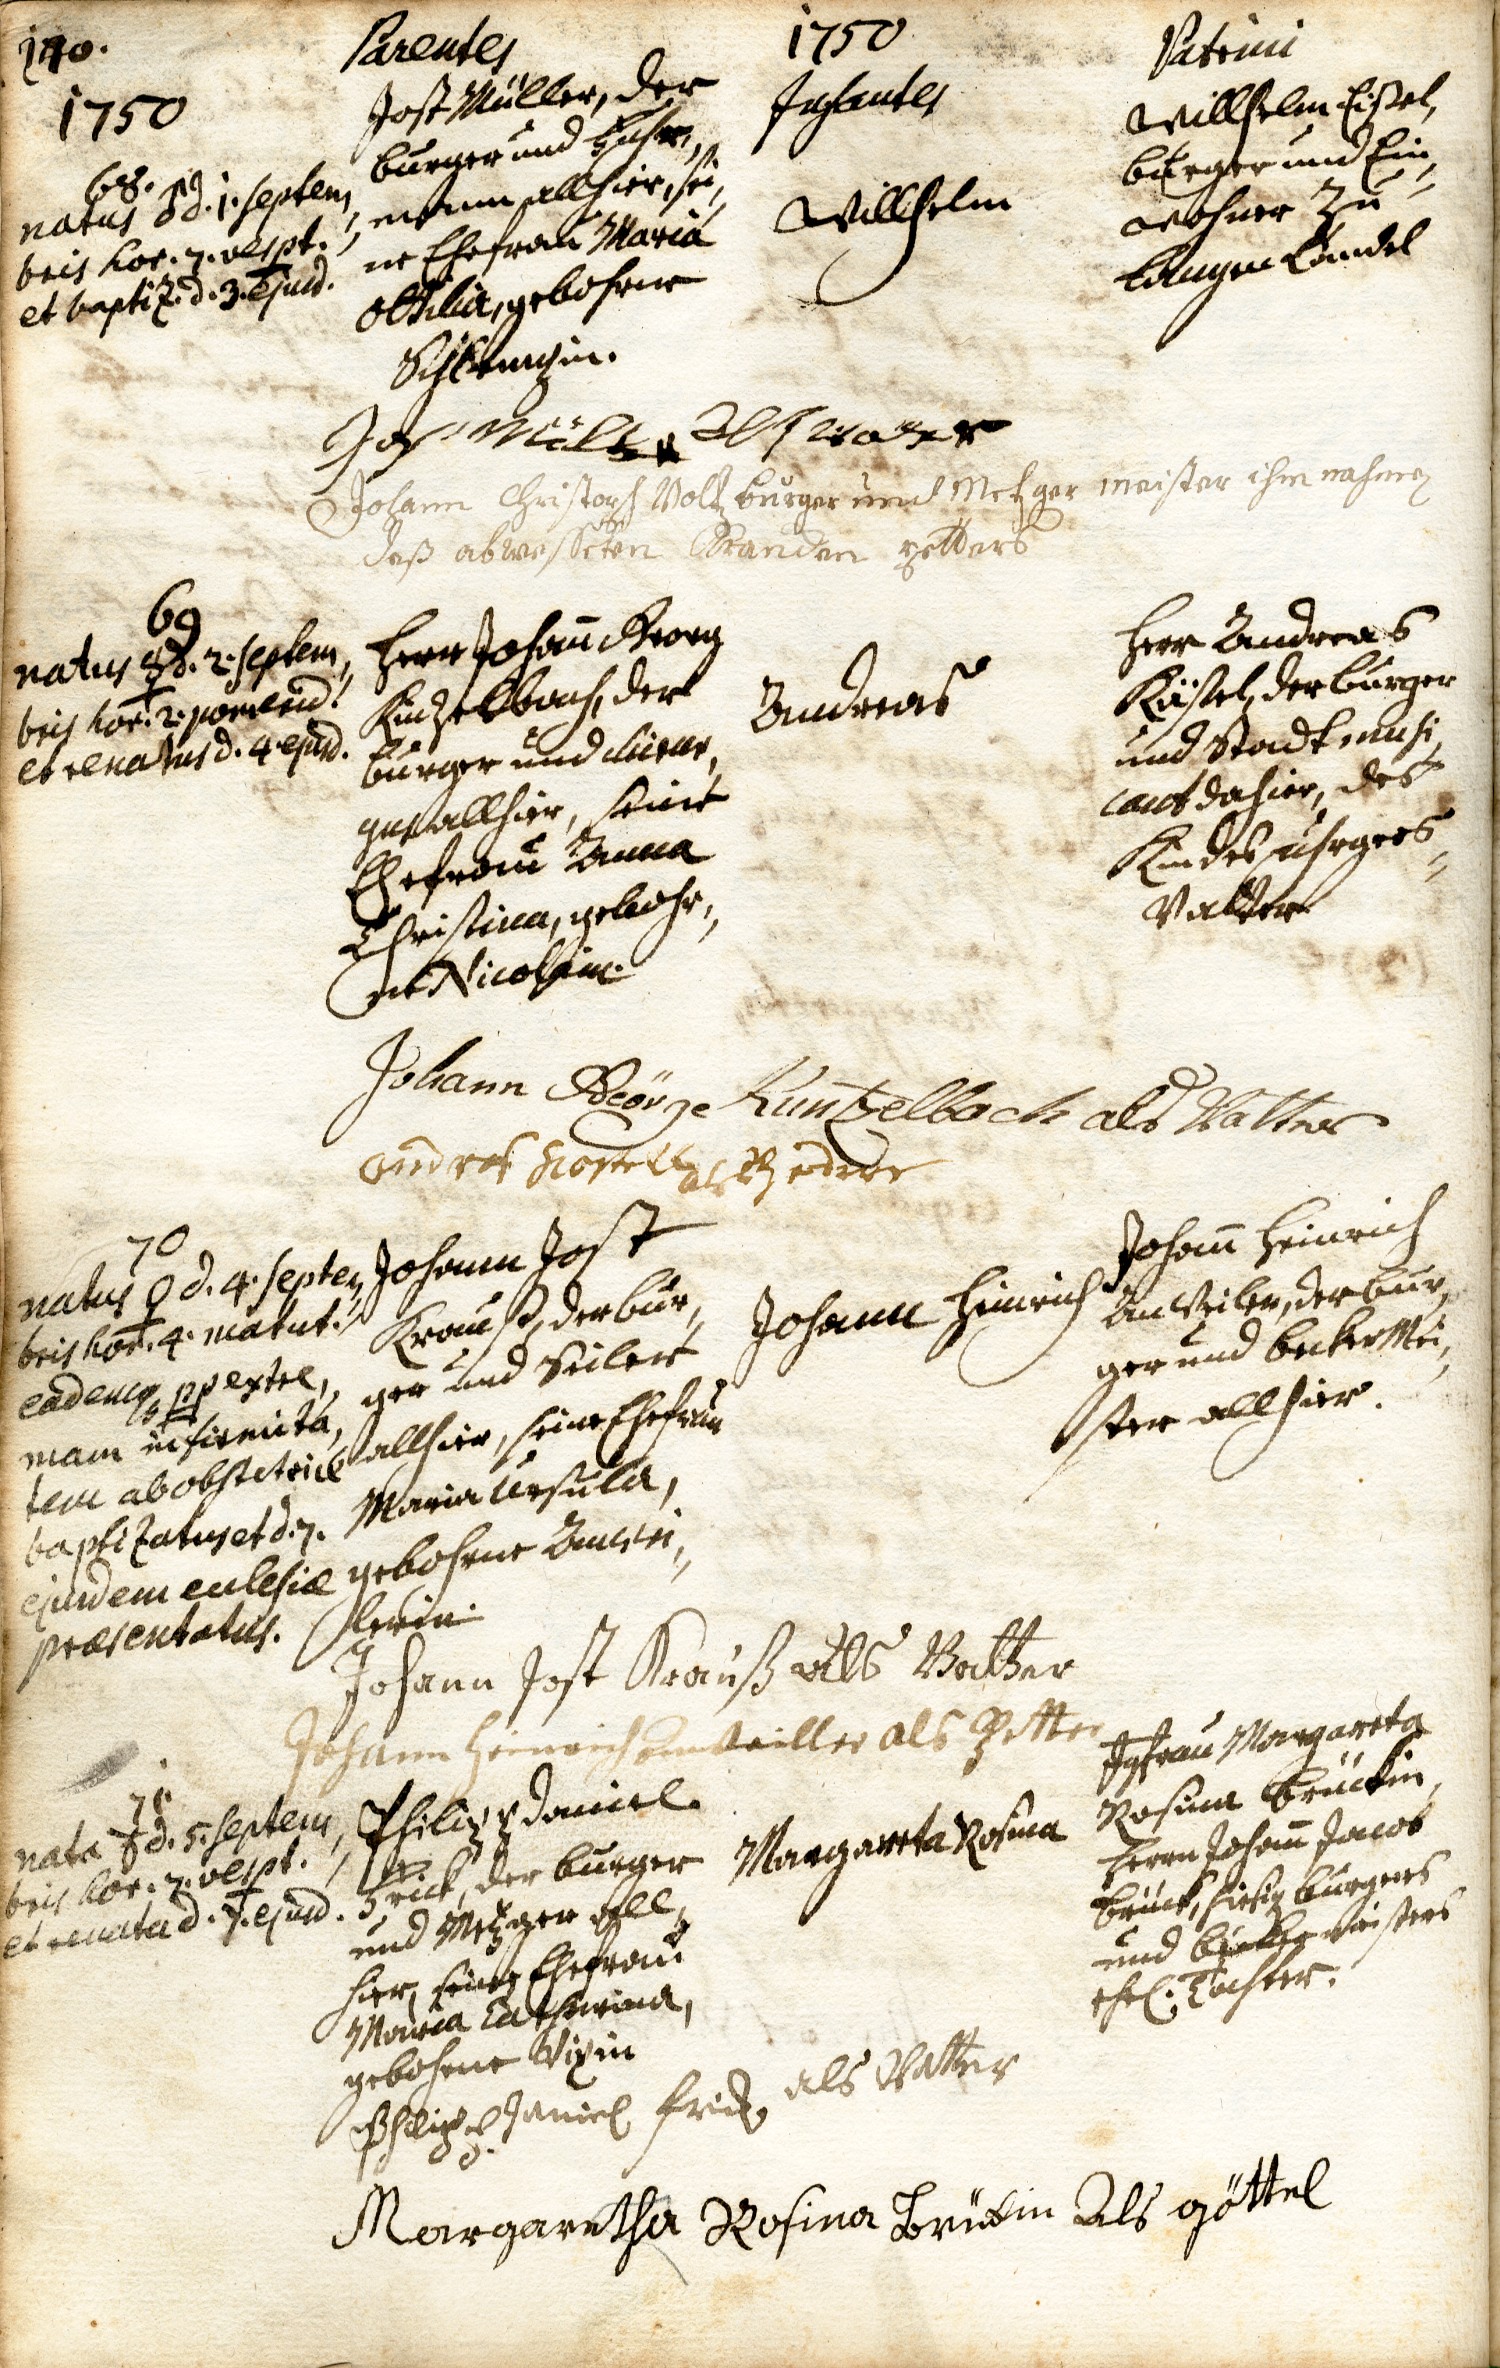 140.
1750
Parentes
1750
Infantes
Patrini
68.
natus d. 1. Septem,,
bris hor. 7. vespt.
et baptiz. d. 3. ejusd.
Jost Müller, der
burger und Fuhr,,
mann allhier, sei,,
ne Ehefrau Maria
Ottilia, gebohrne
Willhelm
Willhelm Eissel,
burger und Ein,,
wohner zu
Langen Candel
Jost Müller Als vatter
Johann Christoph Voltz burger und Metzger meister ihm nahmen
deß abweßeten
69
natus d. 2. Septem,,
bris hor. 2. pomerid.
et renatus d. 4. ejusd.
Herr Johann Georg
Kintzelbach, der
burger und
allhier, seine
Ehefrau Anna
Christina, gebohr,,
ne Nicolain.
Andreas
Herr Andreas
Kästel, der burger
und Stadtmusi,,
cant dahier, des
Kindes Uhrgroß,,
Vatter
Johann Geörge Kuntzelbach als Vatter
70
natus d. 4. Septem,,
bris hor. 4. matut.
eademq. pp extre,,
mam infirmita,,
tem ab obstetrice
baptizatus et d. 7.
ejusdem eclesiæ
præsentatus.
Johann Jost
Krauß, der bur,,
ger und Seiler
allhier, seine Ehefrau
Maria Ursula,
gebohrne Anwei,,
lerin.
Johann Heinrich
Johann Heinrich
Anweiler, der bur,,
ger und becker Mei,,
ster allhier.
Johann Jost Krauß als Vatter
Johann Heinrich anweiller als Petter
71
nata d. 5. Septem,,
bris hor. 7. vespt.
et renata d. 7. ejusd.
Philipp Daniel
Frick, der burger
und Metzger all,,
hier, seine Ehefrau
Maria Catharina,
gebohrne
Margareta Rosina
Jgfrau Margareta
Rosina Brückin,
Herrn Johann Jacob
Brück, hiesig burgers
und meisters
ehel. Tochter.
Philipp Daniel Frick als Vatter
Margaretha Rosina Brückin Als göttel